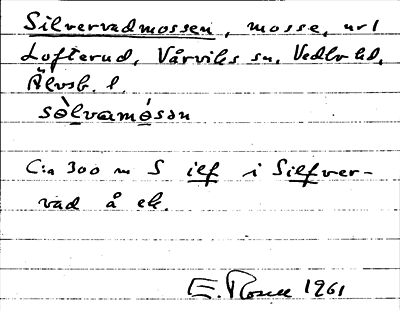 Silvervadmossen, mosse, nr 1
Lofterud, Vårviks sn, Vedbo hd,
Älvsb. l.
sòlvamósàn
C:a 300 m S ilf i Silfver-
vad å ek.
E. Rosell 1961